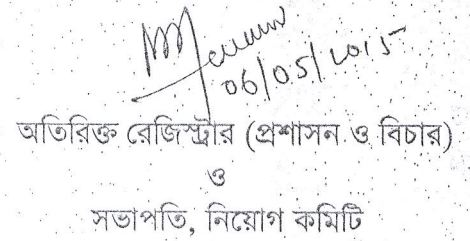 06/05/2015
অতিরিক্ত রেজিস্ট্রার (প্রশাসন ও বিচার)
ও
সভাপতি, নিয়োগ কমিটি